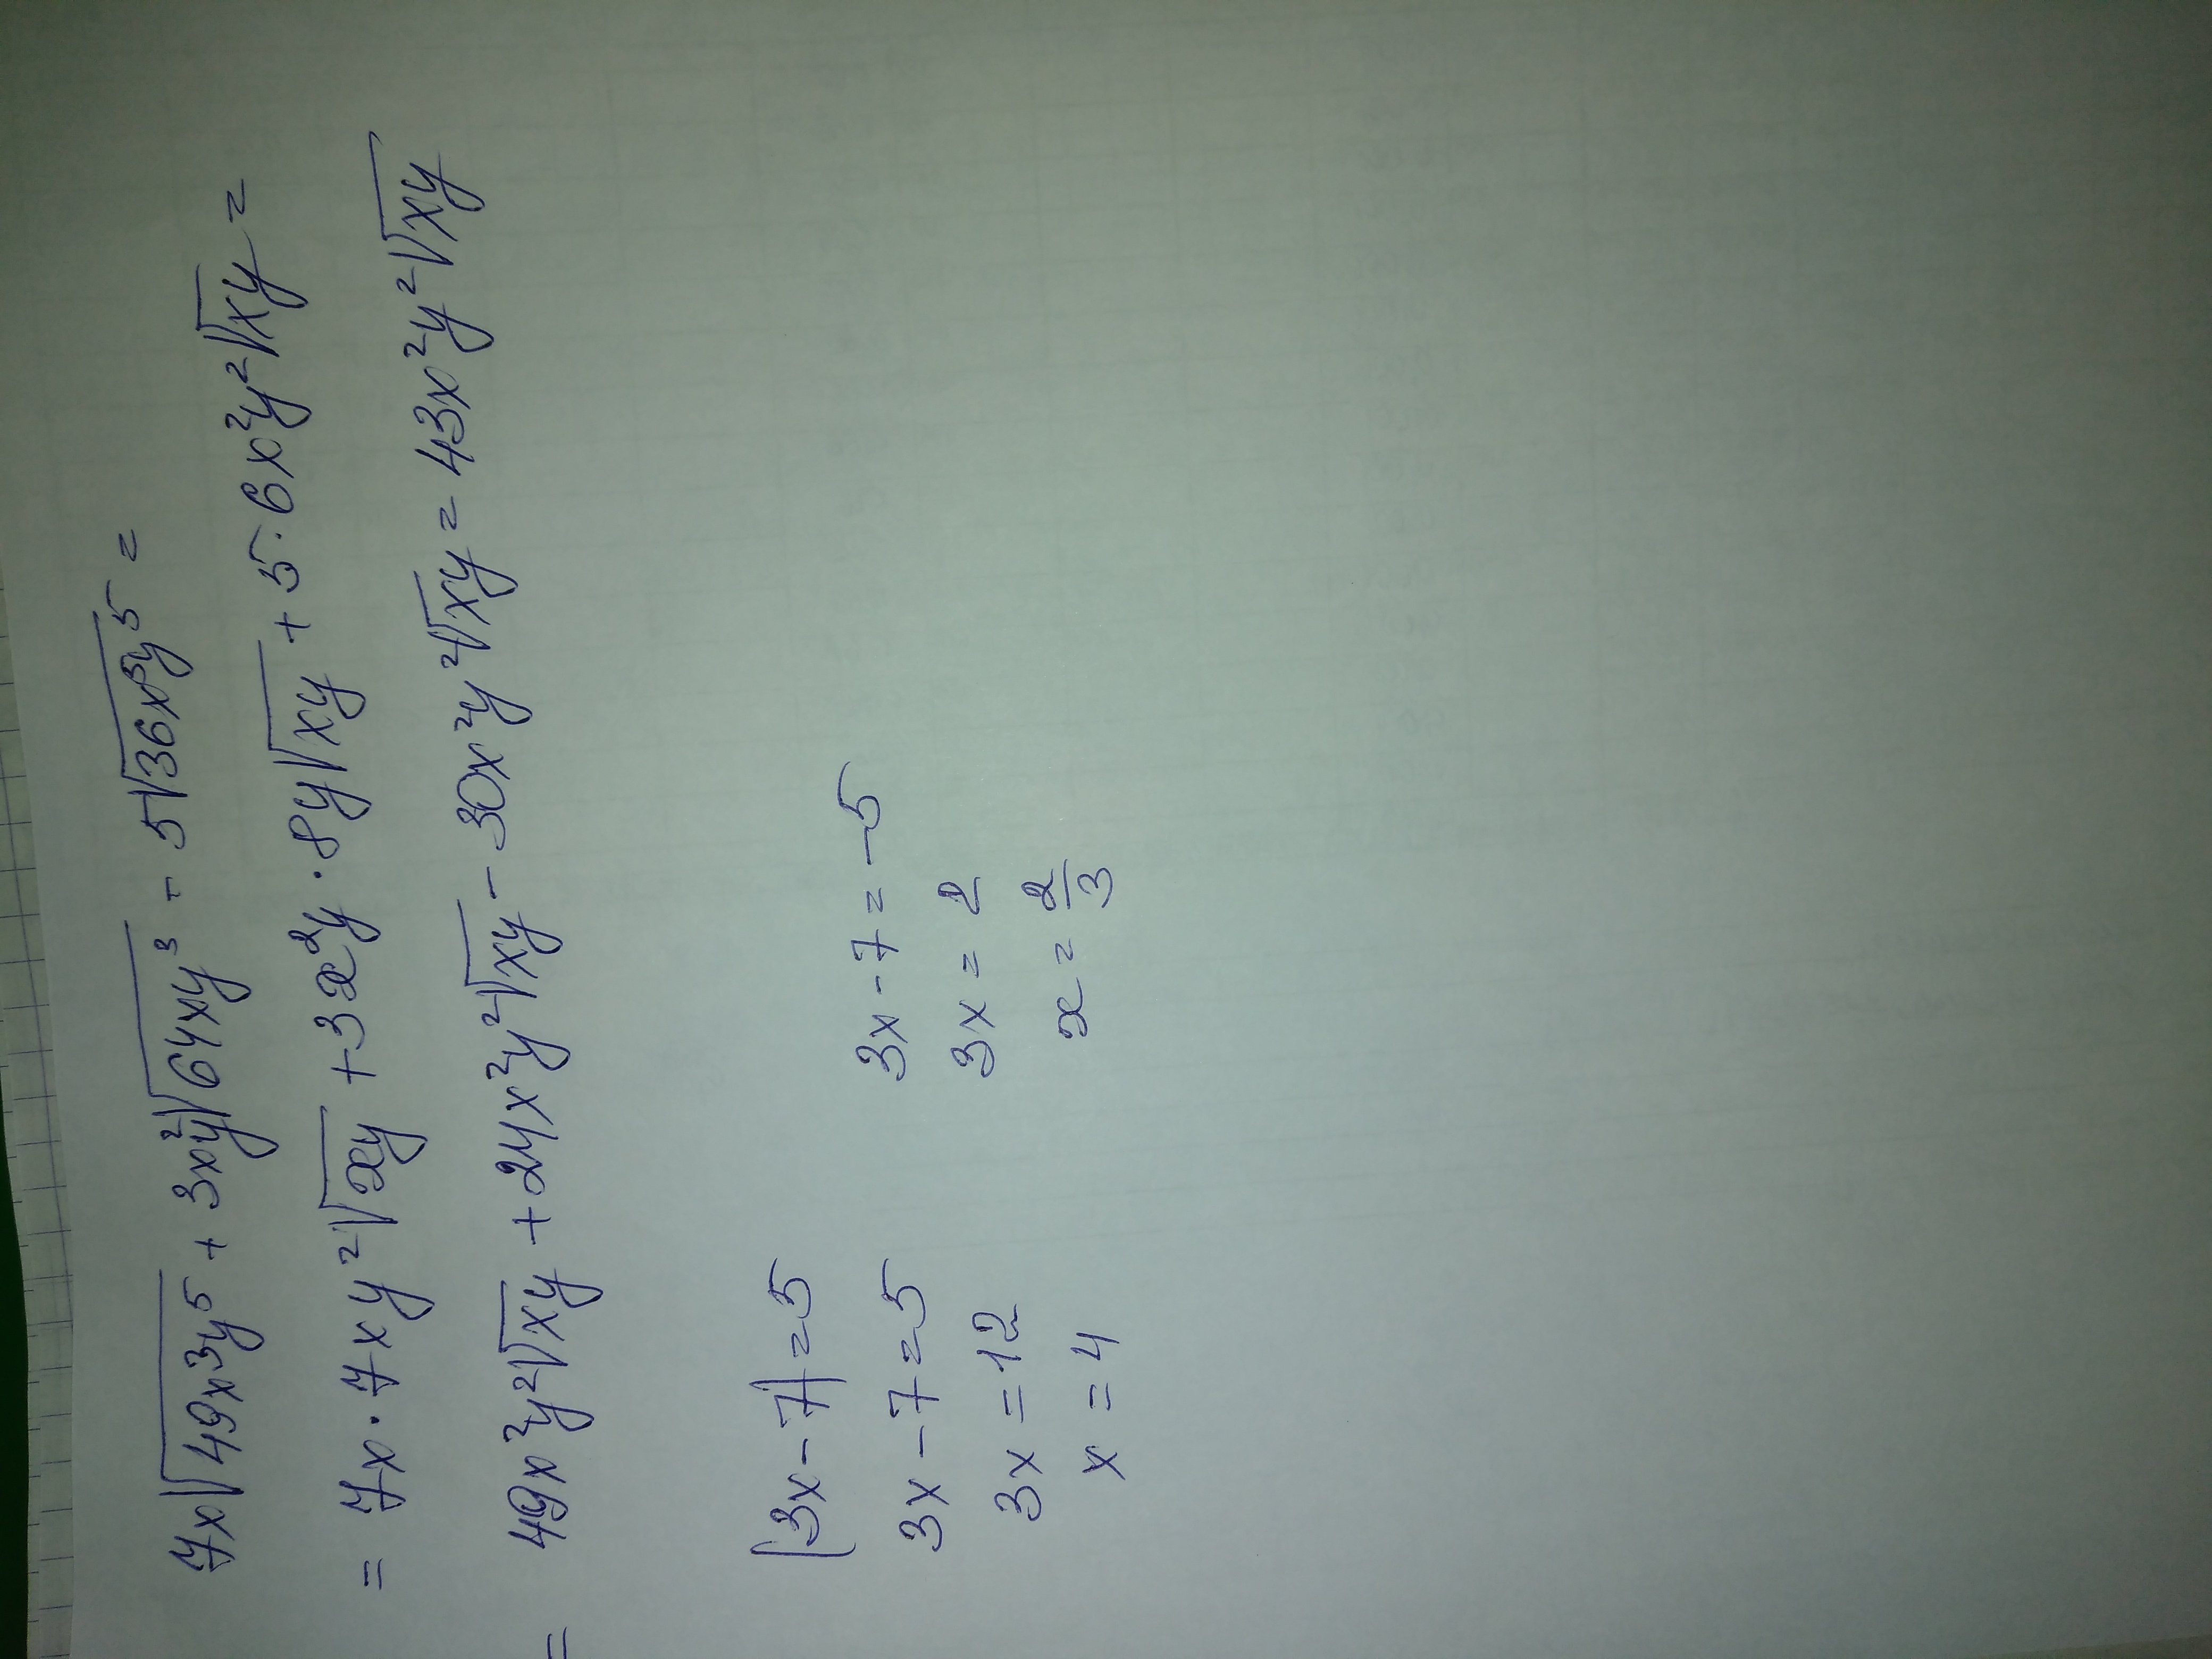 7x√49x³y⁵ + 3xy²√64xy³ - 5√36x⁵y⁵ =
= 7x · 7xy²√xy + 3x²y · 8y√xy + 5 · 6x²y²√xy =
= 49x²y²√xy + 24x²y²√xy - 30x²y²√xy = 43x²y²√xy
|3x - 7| = 5
3x - 7 = 5 3x - 7 = -5
3x = 12 3x = 2
x = 4 x = 2/3